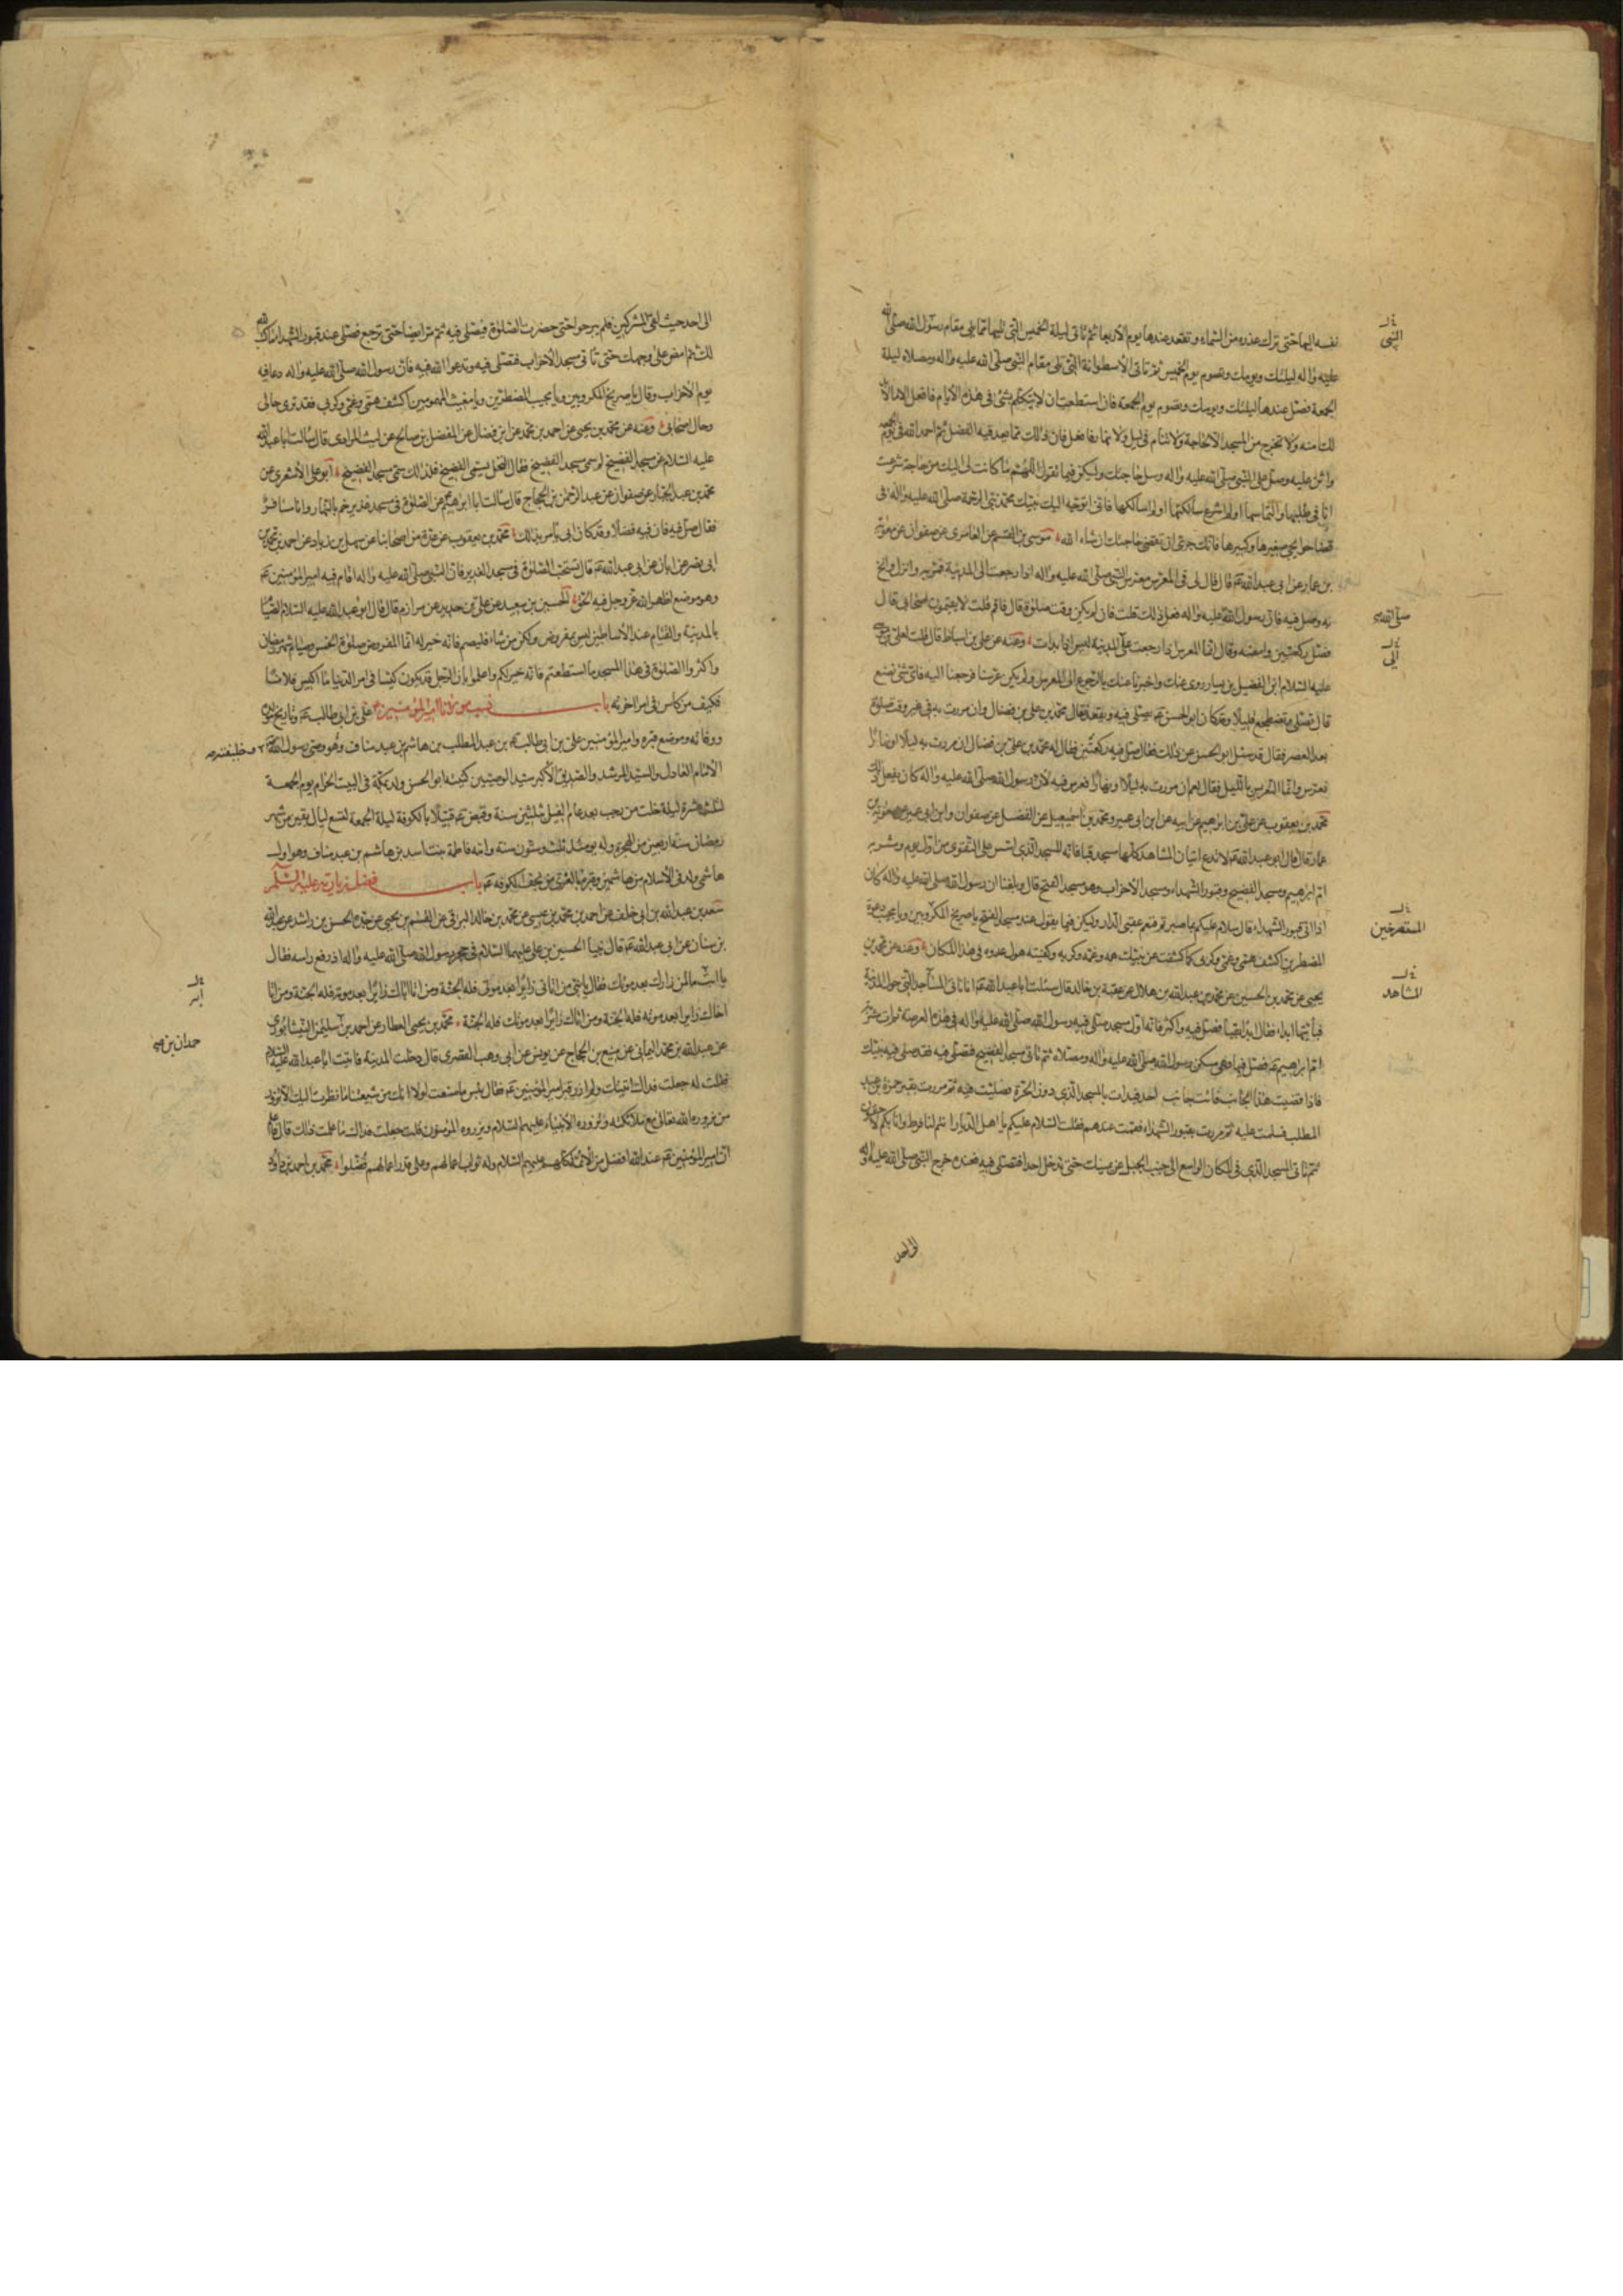 نفسه اليها حتى نزل عذره من السماء وتقعد عندها يوم الاربعا ثم تاتى ليلة الخميس التى تليها مما يلى مقام رسول الله صلى الله
عليه واله ليلتك ويومك وتصوم يوم الخميس ثم تاتى الاسطوانة التى تلى مقام النبى صلى الله عليه واله ومصلاه ليلة
الجمعة فصل عندها ليلتك ويومك وتصوم يوم الجمعة فان استطعت ان لا تتكلم بشئ فى هذه الايام فافعل الا ما لا بد
لك منه ولا تخرج من المسجد الا لحاجة ولا تنام فى ليل ولا نهار فافعل فان ذلك مما يعد فيه الفضل ثم احمد الله فى يوم الجمعة
واثن عليه وصل على النبى صلى الله عليه واله وسل حاجتك وليكن فيما تقول اللهم ما كانت لى اليك من حاجة شرعت
انا فى طلبها والتماسها او لم اشرع سألتكها او لم اسألكها فانى اتوجه اليك بنبيك محمد نبى الرحمة صلى الله عليه واله فى
قضاء حوايجى صغيرها وكبيرها فانك حرى ان تقضى حاجتك ان شاء الله موسى بن القسم عن العامرى عن صفوان عن معوية
بن عمار عن ابى عبد الله ع قال قال لى فى المعرس معرس النبى صلى الله عليه واله اذا رجعت الى المدينة فمر به وانزل وانخ
به وصل فيه فان رسول الله عليه واله فعل ذلك قلت فان لم يكن وقت صلوة قال فاقم قلت لا يقيمون اصحابى قال
فصل ركعتين وامضه وقال انما المعرس اذا رجعت على المدينة ليس اذا بدات وعنه عن على بن اسباط قال قلت لعلى بن موسى
عليه السلام ابن الفضيل بن يسار روى عنك واخبرنا عنك بالرجوع الى المعرس ولم نكن عرسنا فرجعنا اليه فاى شئ نصنع
قال تصلى وتضطجع قليلا وقد كان ابو الحسن ع يصلى فيه ويقعد فقال محمد بن على بن فضال وان مررت به فى غير وقت صلوة
بعد العصر فقال قد سئل ابو الحسن عن ذلك فقال صل فيه ركعتين فقال له محمد بن على بن فضال ان مررت به ليلا او نهارا
نعرس وانما التعريس بالليل فقال نعم ان مررت به ليلا او نهارا فعرس فيه لان رسول الله صلى الله عليه واله كان يفعل ذلك
محمد بن يعقوب عن على بن ابرهيم عن ابيه عن ابن ابى عمير ومحمد بن اسمعيل عن الفضل عن صفوان وابن ابى عمير عن معوية بن
عمار قال قال ابو عبد الله ع لا تدع اتيان المشاهد كلها مسجد قبا فانه المسجد الذى اسس على التقوى من اول يوم ومشربة
ام ابرهيم ومسجد الفضيخ وقبور الشهداء ومسجد الاحزاب وهو مسجد الفتح قال وبلغنا ان رسول الله صلى الله عليه واله كان
اذا اتى قبور الشهداء قال سلام عليكم بما صبرتم فنعم عقبى الدار وليكن فيما تقول عند مسجد الفتح يا صريخ المكروبين ويا مجيب دعوة
المضطرين اكشف همى وغمى وكربى كما كشفت عن نبيك همه وغمه وكربه وكفيته هول عدوه فى هذا المكان وعنه عن محمد بن
يحيى عن محمد بن الحسين عن محمد بن عبد الله بن هلال عن عقبة بن خالد قال سئلت ابا عبد الله ع انا ناتى المساجد التى حول المدينة
فبأيتها ابداء فقال ابدأ بقبا فصل فيه واكثر فانه اول مسجد صلى فيه رسول الله صلى الله عليه واله فى هذه العرصة ثم ات مشربة
ام ابراهيم ع فصل فيها وهى مسكن رسول الله صلى الله عليه واله ومصلاه ثم تاتى مسجد الفضيخ فتصلى فيه فقد صلى فيه نبيك
فاذا قضيت هذا الجانب فائت جانب احد فبدات بالمسجد الذى دون الحرة فصليت فيه ثم مررت بقبر حمزة بن عبد
المطلب فسلمت عليه ثم مررت بقبور الشهداء فقمت عندهم فقلت السلام عليكم يا اهل الديار انتم لنا فرط وانا بكم لاحقون
ثم تاتى المسجد الذى فى المكان الواسع الى جنب الجبل عن يمينك حتى تدخل احدا فتصلى فيه فعنده خرج النبى صلى الله عليه واله
الى احد
النبى
صلى الله
ابى
المستصرخين
المشاهد
الى احد حيث لقى المشركين فلم يبرحوا حتى حضرت الصلوة فيصلى فيه ثم مر ايضا حتى ترجع فتصلى عند قبور الشهداء ما كتب الله
لك ثم امض على وجهك حتى تاتى مسجد الاحزاب فتصلى فيه وتدعوا الله فيه فان رسول الله صلى الله عليه واله دعا فيه
يوم الاحزاب وقال يا صريخ المكروبين ويا مجيب المضطرين ويا مغيث المهمومين اكشف همى وغمى وكربى فقد ترى حالى
وحال اصحابى وعنه عن محمد بن يحيى عن احمد بن محمد عن ابن فضال عن المفضل بن صالح عن ليث المرادى قال سالت ابا عبد الله
عليه السلام عن مسجد الفضيخ لم سمى مسجد الفضيخ فقال النخل يسمى الفضيخ فلذلك سمى مسجد الفضيخ ابو على الاشعرى عن
محمد بن عبد الجبار عن صفوان عن عبد الرحمن بن الحجاج قال سالت ابا ابرهيم عن الصلوة فى مسجد غدير خم بالنهار وانا مسافر
فقال صل فيه فان فيه فضلا وقد كان ابى يأمر بذلك محمد بن يعقوب عن عدة من اصحابنا عن سهل بن زياد عن احمد بن محمد بن
ابى نصر عن ابان عن ابى عبد الله ع قال تستحب الصلوة فى مسجد الغدير فان النبى صلى الله عليه واله اقام فيه امير المؤمنين ع
وهو موضع اظهر الله عز وجل فيه الحق الحسين بن سعيد عن على بن حديد عن مرازم قال قال ابو عبد الله عليه السلام الصيام
بالمدينة والقيام عند الاساطين ليس بمفروض ولكن من شاء فليصم فانه خير له انما المفروض صلوة الخمس وصيام شهر رمضان
واكثروا الصلوة فى هذا المسجد ما استطعتم فانه خير لكم واعلموا بان الرجل قد يكون كيسا فى امر الدنيا فيقال ما اكيس فلانا
فكيف من كاس فى امر اخرته باب نسب مولانا امير المؤمنين علي بن ابى طالب ع وتاريخ مولده
ووفاته وموضع قبره وامير المؤمنين على بن ابى طالب ع بن عبد المطلب بن هاشم بن عبد مناف وهو وصى رسول الله
الامام العادل والسيد المرشد والصديق الاكبر سيد الوصيين كنيته ابو الحسن ولد بمكة فى البيت الحرام يوم الجمعة
لثلث عشرة ليلة خلت من رجب بعد عام الفيل بثلثين سنة وقبض ع قتيلا بالكوفة ليلة الجمعة لتسع ليال بقين من شهر
رمضان سنة اربعين من الهجرة وله يومئذ ثلث وستون سنة وامه فاطمة بنت اسد بن هاشم بن عبد مناف وهو اول
هاشمى ولد فى الاسلام من هاشمين وقبره بالغرى من نجف الكوفة ع باب فضل زيارته عليه السلم
سعد بن عبد الله بن ابى خلف عن احمد بن محمد بن عيسى عن محمد بن خالد البرقى عن القسم بن يحيى عن جده الحسن بن راشد عن عبد الله
بن سنان عن ابى عبد الله ع قال بينا الحسين بن على عليهما السلام فى حجر رسول الله صلى الله عليه واله اذ رفع راسه فقال
يا ابت ما لمن زارك بعد موتك فقال يا بنى من اتانى زائرا بعد موتى فله الجنة ومن اتا اباك زائرا بعد موته فله الجنة ومن اتا
اخاك زايرا بعد موته فله الجنة ومن اتاك زائرا بعد موتك فله الجنة محمد بن يحيى العطار عن احمد بن سليمن النيسابورى
عن عبد الله بن محمد اليمانى عن منيع بن الحجاج عن يونس عن ابى وهب القصرى قال دخلت المدينة فاتيت ابا عبد الله عليه السلام
فقلت له جعلت فداك اتيتك ولم ازر قبر امير المؤمنين ع فقال بئس ما صنعت لولا انك من شيعتنا ما نظرت اليك الا تزور
من يزوره الله تعالى مع ملائكته ويزوره الانبياء عليهم السلام ويزوره المؤمنون قلت جعلت فداك ما علمت ذلك قال فاعلم
ان امير المؤمنين ع عند الله افضل من الائمة كلهم عليهم السلام وله ثواب اعمالهم وعلى قدر اعمالهم فضلوا محمد بن احمد بن داود
حمدان بن